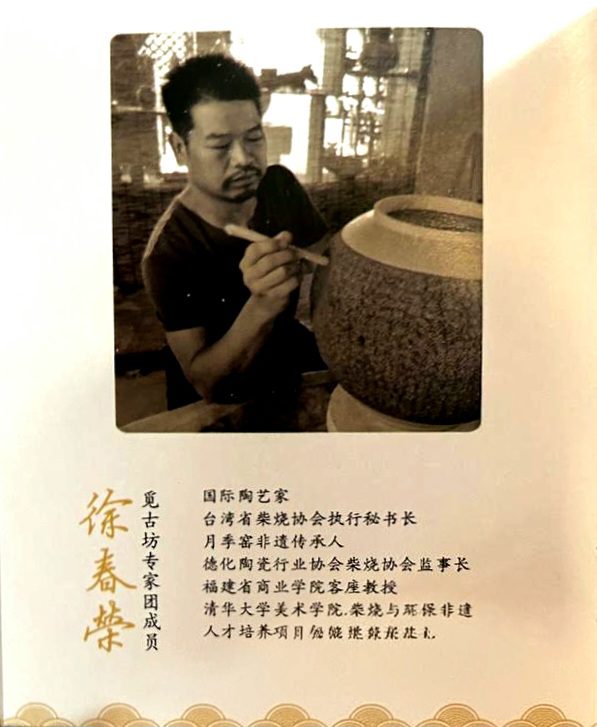 徐春荣
觅古坊专家团成员
国际陶艺家
台湾省柴烧协会执行秘书长
月季窑非遗传承人
德化陶瓷行业协会柴烧协会监事长
福建省商业学院客座教授
清华大学美术学院.柴烧与环保非遗
人才培养项目